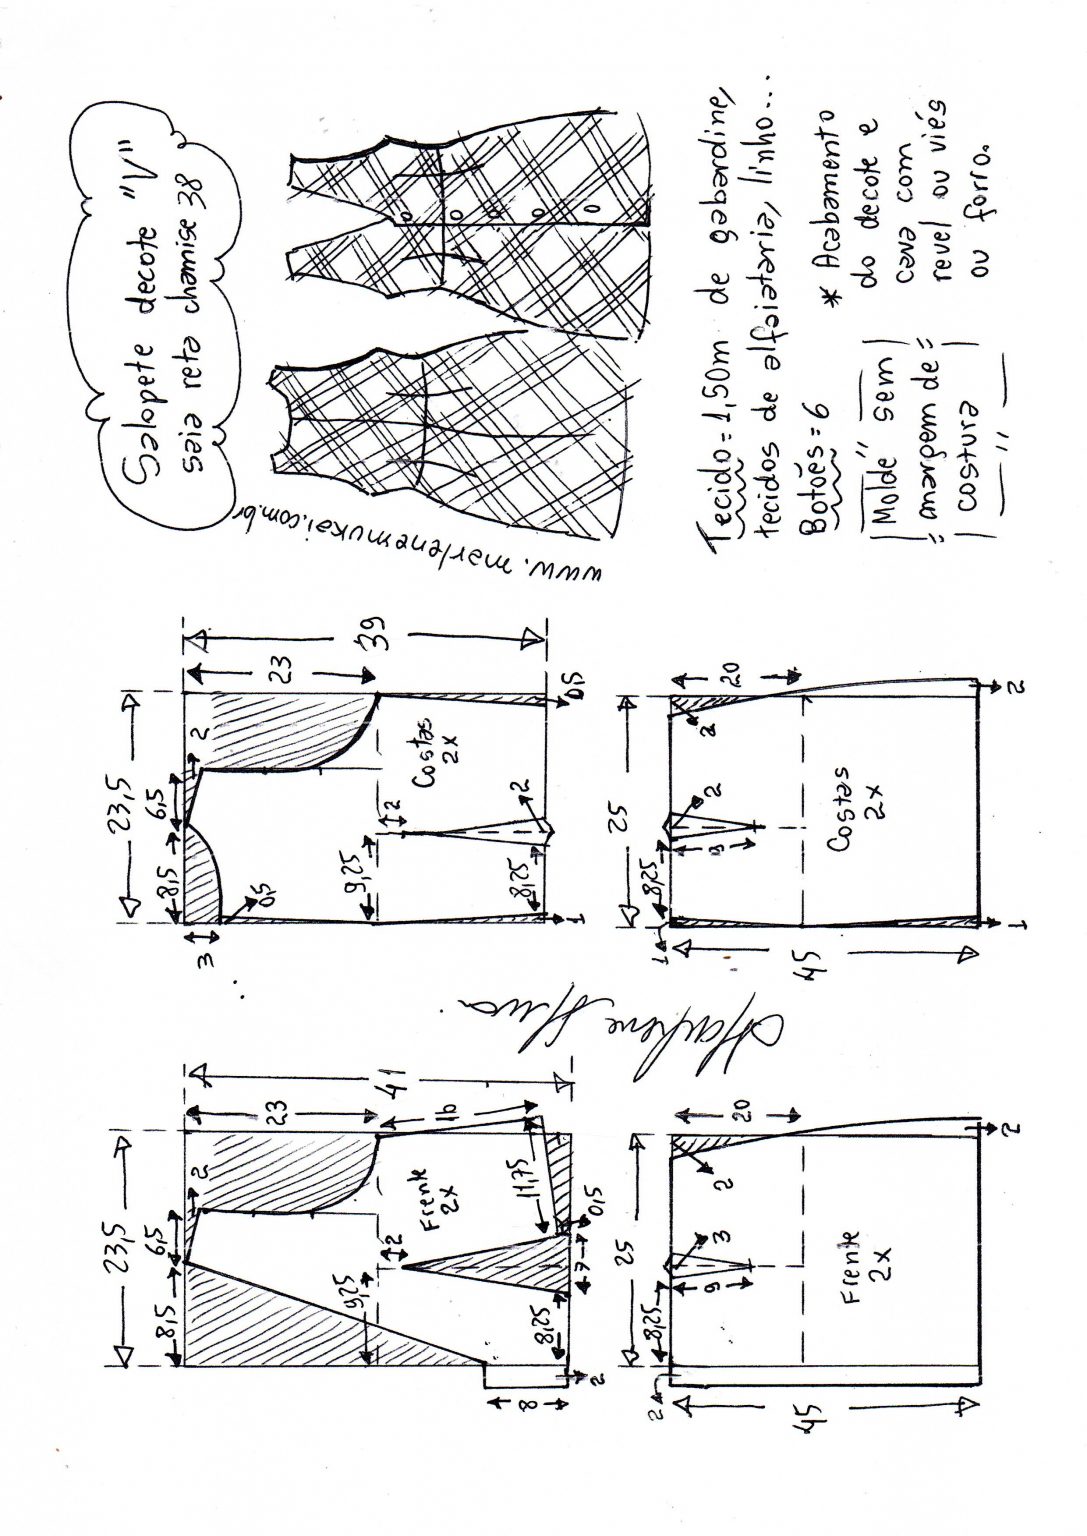 Salopete decote "V"
saia reta chamise 38
www.marlenemukai.com.br
Tecido = 1,50m de gabardine,
tecidos de alfaiataria, linho...
Botões = 6
* Acabamento
do decote e
cava com
revel ou viés
ou forro.
"Molde sem
margem de
costura"
23,5
8,5
6,5
2
3
0,5
23
39
Costas
2x
9,25
2
8,25
2
1
0,5
25
8,25
1
2
2
20
Costas
2x
45
1
2
Marlene
23,5
8,5
6,5
2
23
41
16
Frente
2x
9,25
2
11,75
8,25
7
0,5
8
2
25
8,25
2
9
3
2
20
Frente
2x
45
2